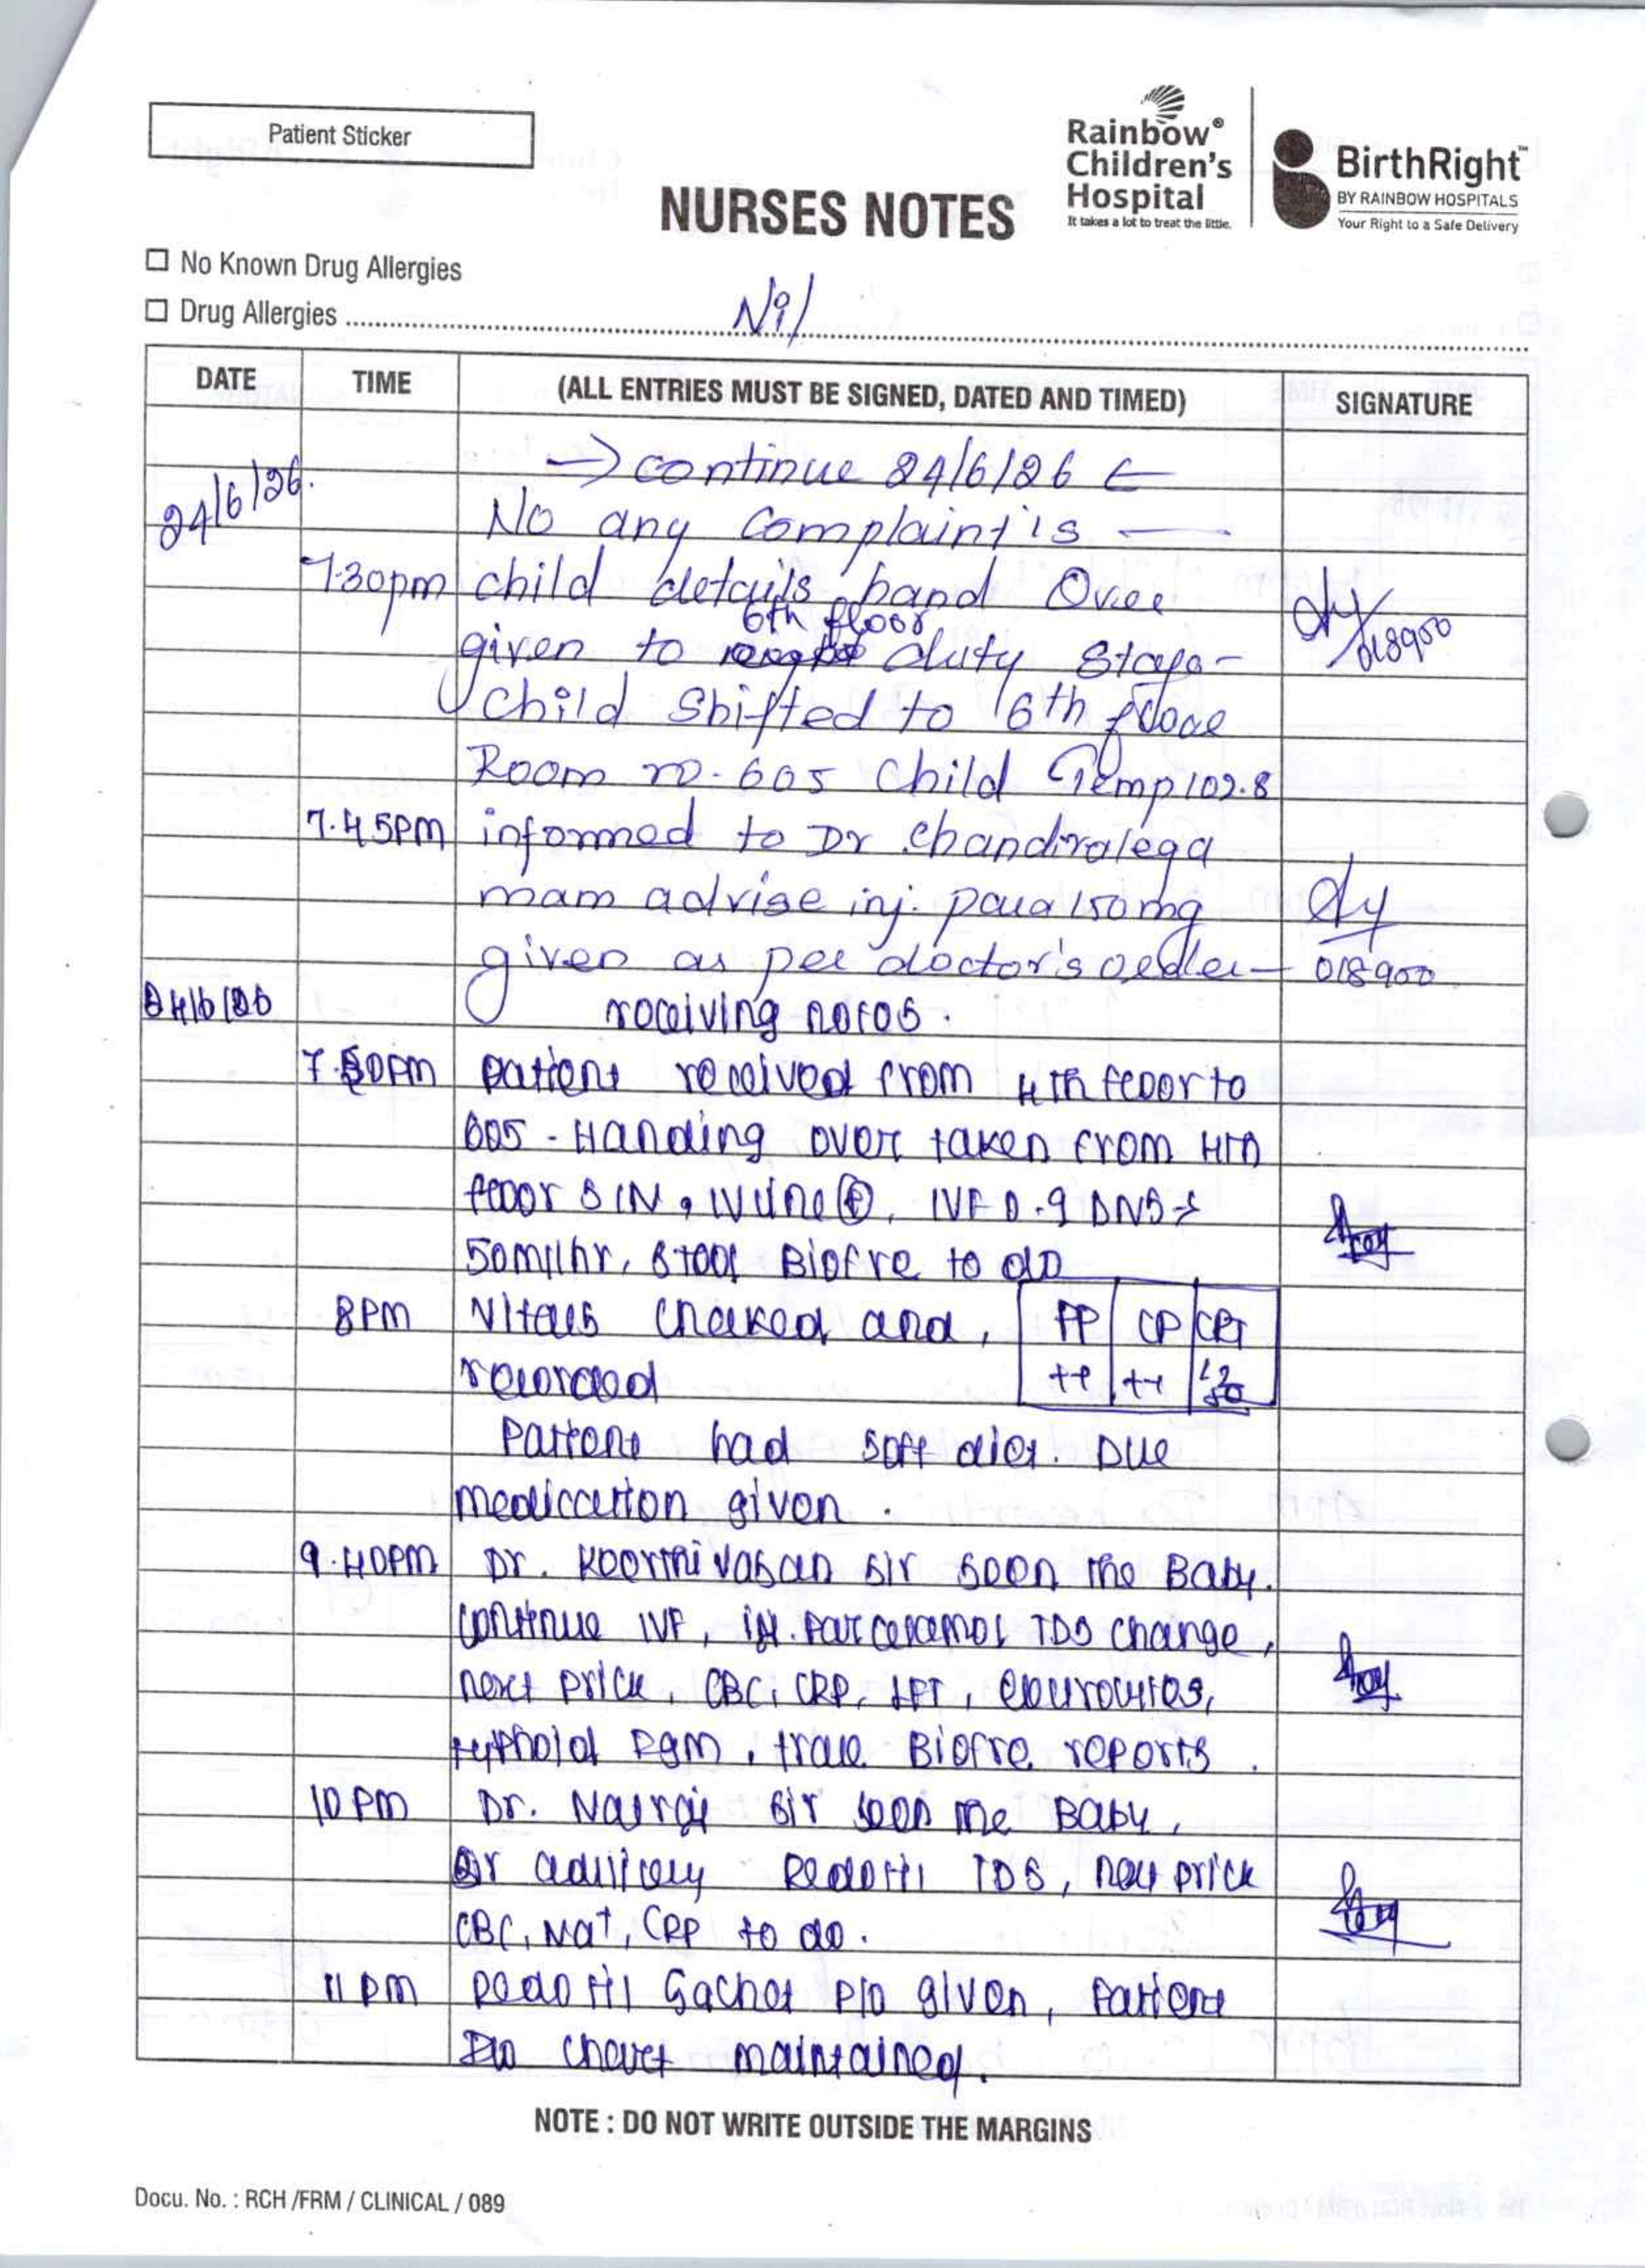 Patient Sticker
Rainbow®
Children's
Hospital
It takes a lot to treat the little.
BirthRight™
BY RAINBOW HOSPITALS
Your Right to a Safe Delivery
NURSES NOTES
☐ No Known Drug Allergies
☐ Drug Allergies Nil
DATE TIME (ALL ENTRIES MUST BE SIGNED, DATED AND TIMED) SIGNATURE
→ continue 24/6/26 ←
24/6/26. No any Complaint is —
7.30pm child details hand Over
6th floor
given to duty
018900
child shifted to 6th
Room no. 605 child Temp 102.8
7.45pm informed to Dr Chandralega
mam advise inj. para 150mg
given as per doctor's order – 018900
24/6/26 receiving notes.
patient received from 4th floor to
605 - Handing over taken from 4th
floor SIN, IV line, IVF 0.9 DNS
50ml/hr, stool Biofire to do
8PM Vitals checked and, PP CP CRT
recorded
Patient had soft diet. Due
medication given.
9.40PM Dr. Keerthivasan sir seen the Baby.
continue IVF, inj. Parceramol TDS change,
next prick, CBC, CRP, LFT, electrolytes,
typhoid IgM, trace Biofire reports.
10 PM Dr. sir seen the Baby,
TDS, next prick
CBC, Nat, CRP to do.
11 pm Sachet P/o given, Patient
I/O chart maintained.
NOTE : DO NOT WRITE OUTSIDE THE MARGINS
Docu. No. : RCH /FRM / CLINICAL / 089